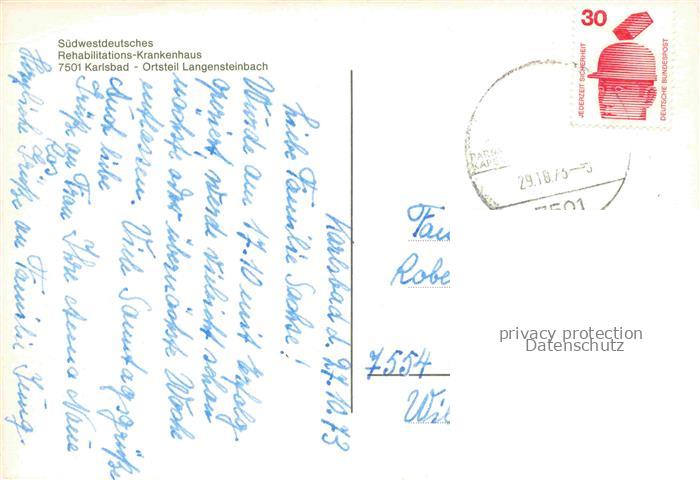 Südwestdeutsches
Rehabilitations-Krankenhaus
7501 Karlsbad - Ortsteil Langensteinbach
Karlsbad d. 27.10.73
Liebe Familie Sachse!
Wurde am 17.10 mit Erfolg
operiert, werde vielleicht schon
nächste oder übernächste Woche
entlassen. Viele Samstagsgrüße
Auch liebe
Grüße an Frau Ihre Anna
Herzliche Grüße an Familie Jung.
30
JEDERZEIT SICHERHEIT
DEUTSCHE BUNDESPOST
29.10.73
7501
Fam
Robe
7554
Wil
privacy protection
Datenschutz